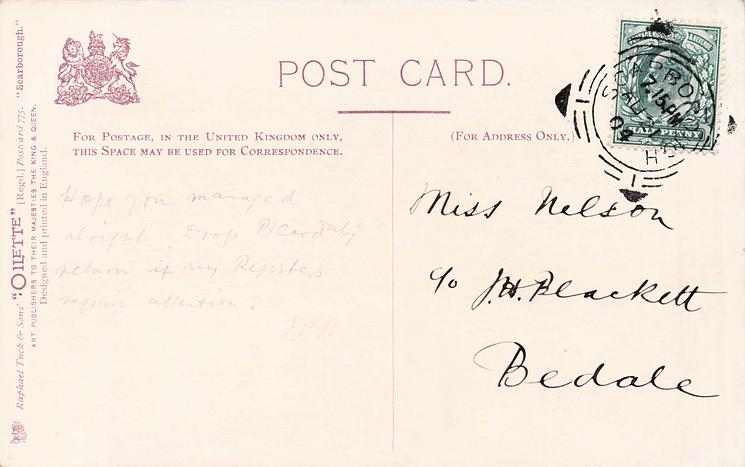 POST CARD.
FOR POSTAGE, IN THE UNITED KINGDOM ONLY,
THIS SPACE MAY BE USED FOR CORRESPONDENCE.
(FOR ADDRESS ONLY.)
Hope you managed
alright. Drop P/Card by
return if any Registers
require attention.
J.H.B
Miss Nelson
c/o J.H. Blackett
Bedale
HALF PENNY
7.15 PM
04
Raphael Tuck & Sons' "OILETTE" [Regd.] Postcard 775. "Scarborough."
ART PUBLISHERS TO THEIR MAJESTIES THE KING & QUEEN.
Designed and printed in England.